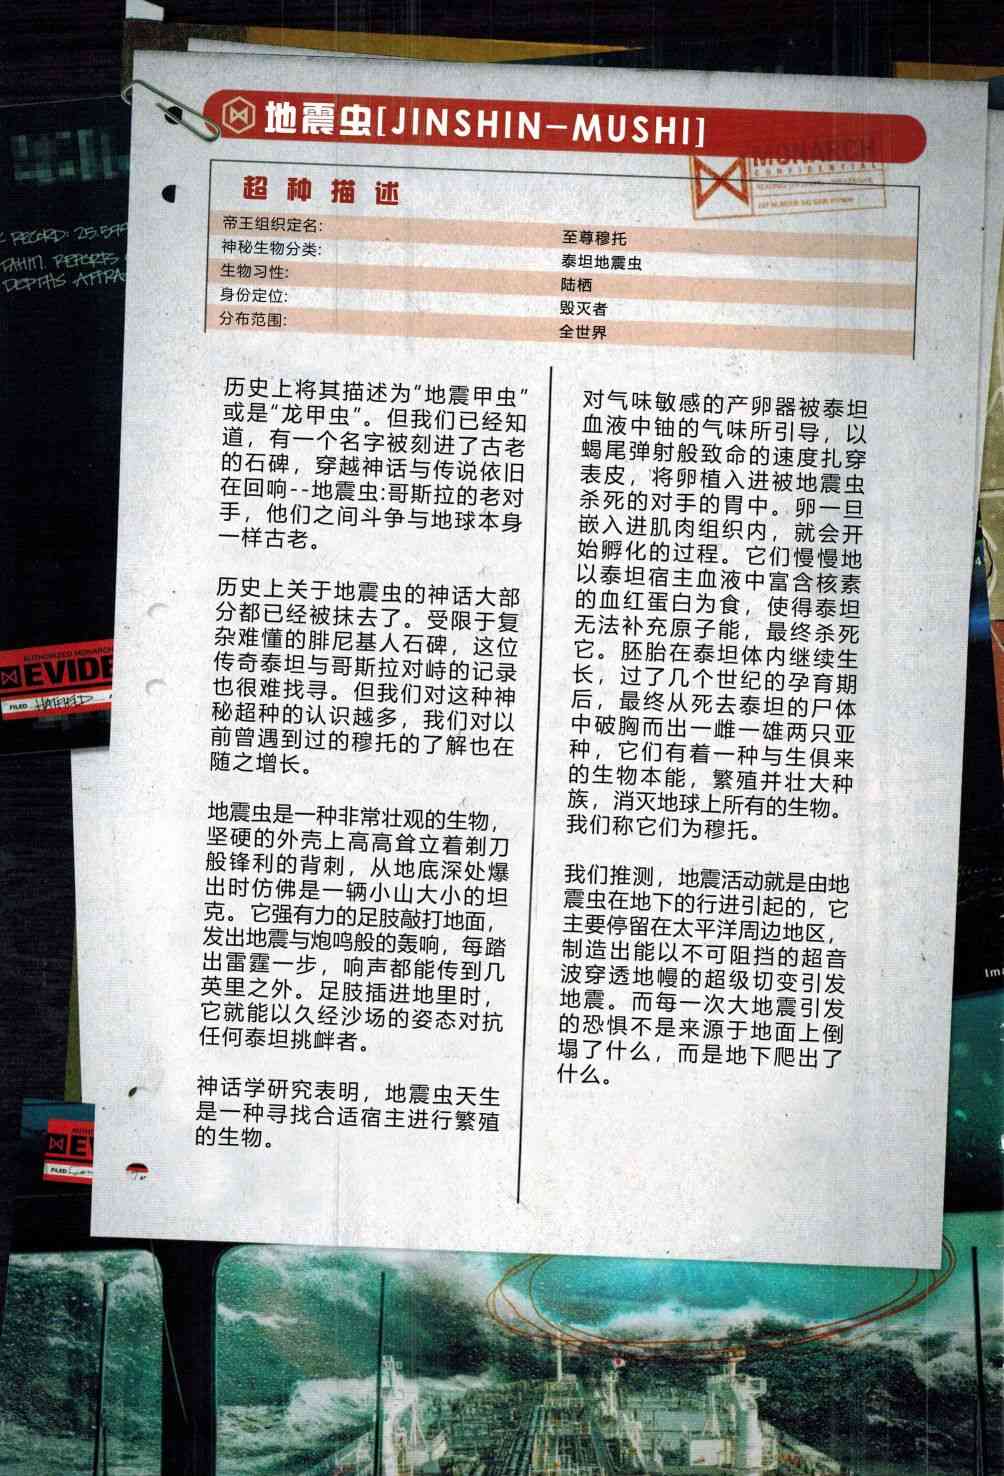 地震虫[JINSHIN-MUSHI]
MONARCH
CONFIDENTIAL
超种描述
帝王组织定名:
至尊穆托
神秘生物分类:
泰坦地震虫
生物习性:
陆栖
身份定位:
毁灭者
分布范围:
全世界
历史上将其描述为“地震甲虫”
或是“龙甲虫”。但我们已经知
道，有一个名字被刻进了古老
的石碑，穿越神话与传说依旧
在回响--地震虫:哥斯拉的老对
手，他们之间斗争与地球本身
一样古老。
历史上关于地震虫的神话大部
分都已经被抹去了。受限于复
杂难懂的腓尼基人石碑，这位
传奇泰坦与哥斯拉对峙的记录
也很难找寻。但我们对这种神
秘超种的认识越多，我们对以
前曾遇到过的穆托的了解也在
随之增长。
地震虫是一种非常壮观的生物，
坚硬的外壳上高高耸立着剃刀
般锋利的背刺，从地底深处爆
出时仿佛是一辆小山大小的坦
克。它强有力的足肢敲打地面，
发出地震与炮鸣般的轰响，每踏
出雷霆一步，响声都能传到几
英里之外。足肢插进地里时，
它就能以久经沙场的姿态对抗
任何泰坦挑衅者。
神话学研究表明，地震虫天生
是一种寻找合适宿主进行繁殖
的生物。
对气味敏感的产卵器被泰坦
血液中铀的气味所引导，以
蝎尾弹射般致命的速度扎穿
表皮，将卵植入进被地震虫
杀死的对手的胃中。卵一旦
嵌入进肌肉组织内，就会开
始孵化的过程。它们慢慢地
以泰坦宿主血液中富含核素
的血红蛋白为食，使得泰坦
无法补充原子能，最终杀死
它。胚胎在泰坦体内继续生
长，过了几个世纪的孕育期
后，最终从死去泰坦的尸体
中破胸而出一雌一雄两只亚
种，它们有着一种与生俱来
的生物本能，繁殖并壮大种
族，消灭地球上所有的生物。
我们称它们为穆托。
我们推测，地震活动就是由地
震虫在地下的行进引起的，它
主要停留在太平洋周边地区，
制造出能以不可阻挡的超音
波穿透地幔的超级切变引发
地震。而每一次大地震引发
的恐惧不是来源于地面上倒
塌了什么，而是地下爬出了
什么。
RECORD: 25.5
REPORTS
DEPTHS
AUTHORIZED MONARCH
EVIDE
FILED
EV
FILED